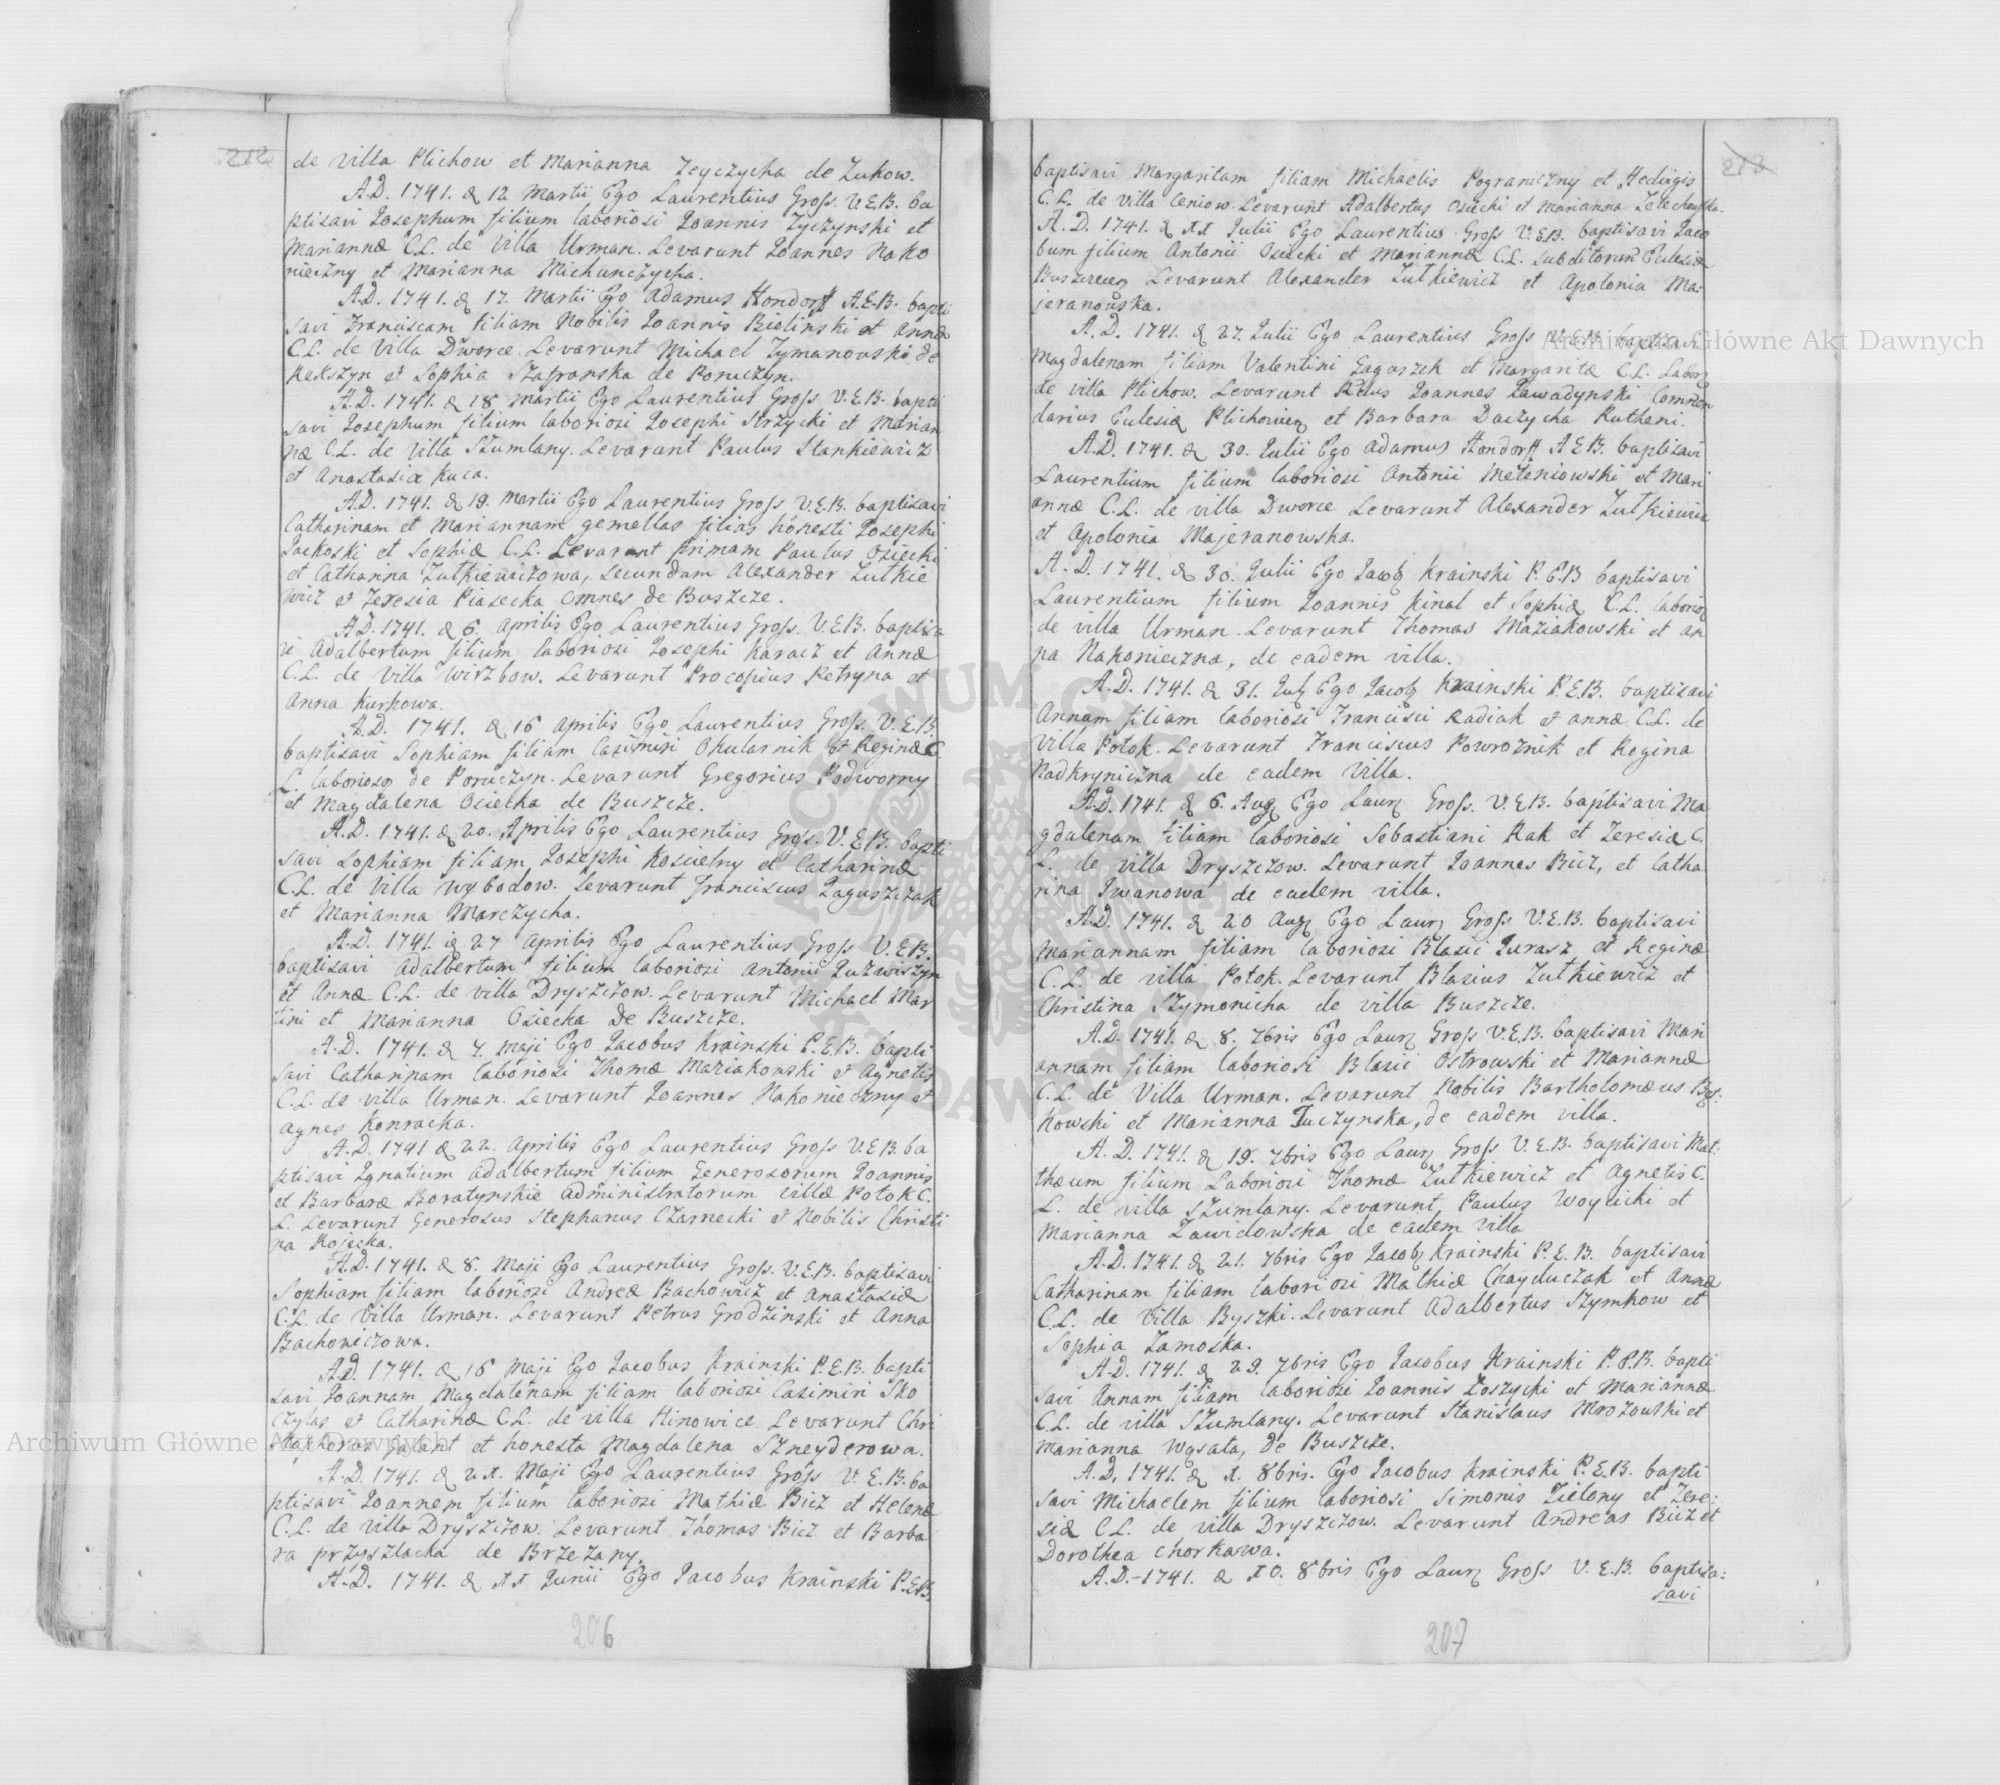 212
de villa Plichow et Marianna Zeyczycha de Zukow.
A.D. 1741. d 12 Martii Ego Laurentius Gross. V.E.B. ba
ptisavi Josephum filium laboriosi Joannis Zyczynski et
Mariannæ C.L. de villa Urman. Levarunt Joannes Nako
nieczny et Marianna Michunczycha.
A.D. 1741. d 17. Martii Ego Adamus Hondorff A.E.B. bapti
savi Franciscam filiam Nobilis Joannis Bielinski et Annæ
C.L. de villa Dworce. Levarunt Michael Zymanowski de
Rekszyn et Sophia Szafranska de Poruczyn.
A.D. 1741. d 18 Martii Ego Laurentius Gross V.E.B. bapti
savi Josephum filium laboriosi Josephi Strzycki et Marian
næ C.L. de villa Szumlany. Levarunt Paulus Stankiewicz
et Anastasia Kuca.
A.D. 1741. d 19. Martii Ego Laurentius Gross V.E.B. baptisavi
Catharinam et Mariannam gemellas filias honesti Josephi
Jackoski et Sophiæ C.L. Levarunt primam Paulus Osiecki
et Catharina Zutkiewiczowa, secundam Alexander Zutkie
wicz et Teresia Piasecka omnes de Buszcze.
A.D. 1741. d 6. Aprilis Ego Laurentius Gross. V.E.B. baptisa
vi Adalbertum filium laboriosi Josephi Karacz et Annæ
C.L. de villa Wirzbow. Levarunt Procopius Petryna et
Anna Kurkowa.
A.D. 1741. d 16 Aprilis Ego Laurentius Gross. V.E.B.
baptisavi Sophiam filiam Casimiri Okularnik et Reginæ C.
L. laborioso de Poruczyn. Levarunt Gregorius Podworny
et Magdalena Osiecka de Buszcze.
A.D. 1741. d 20. Aprilis Ego Laurentius Gross. V.E.B. bapti
savi Sophiam filiam Josephi Koscielny et Catharinæ
C.L. de villa Wybodow. Levarunt Franciscus Zaguszczak
et Marianna Marczycha.
A.D. 1741. d 27 Aprilis Ego Laurentius Gross V.E.B.
baptisavi Adalbertum filium laboriosi Antonii Juzwiszyn
et Annæ C.L. de villa Dryszczow. Levarunt Michael Mar
cini et Marianna Osiecka de Buszcze.
A.D. 1741. d 7. Maji Ego Jacobus Krainski P.E.B. bapti
savi Catharinam laboriosi Thomæ Maziakowski et Agnetis
C.L. de villa Urman. Levarunt Joannes Nakonieczny et
Agnes Konracka.
A.D. 1741 d 22. Aprilis Ego Laurentius Gross V.E.B. ba
ptisavi Ignatium Adalbertum filium Generosorum Joannis
et Barbaræ Boratynskie administratorum villæ Potok C.
L. Levarunt Generosus Stephanus Czarnecki et Nobilis Christi
na Kojecka.
A.D. 1741. d 8. Maji Ego Laurentius Gross. V.E.B. baptisavi
Sophiam filiam laboriosi Andreæ Bachowicz et Anastasiæ
C.L. de villa Urman. Levarunt Petrus Grodzinski et Anna
Bachowiczowa.
A.D. 1741. d 16 Maji Ego Jacobus Krainski P.E.B. bapti
savi Joannam Magdalenam filiam laboriosi Casimiri Sko
czylas et Catharinæ C.L. de villa Hinowice. Levarunt Chri
stophorus Galant et honesta Magdalena Szneyderowa.
A.D. 1741. d 21. Maji Ego Laurentius Gross V.E.B. ba
ptisavi Joannem filium laboriosi Mathiæ Bicz et Helenæ
C.L. de villa Dryszczow. Levarunt Thomas Bicz et Barba
ra Przyszlacka de Brzezany.
A.D. 1741. d 11 Junii Ego Jacobus Krainski P.E.B.
206
213
baptisavi Margaritam filiam Michaelis Pograniczny et Hedvigis
C.L. de villa Ceniow. Levarunt Adalbertus Osiecki et Marianna Zelechowska.
A.D. 1741. d 11 Julii Ego Laurentius Gross V.E.B. baptisavi Jaco
bum filium Antonii Osiecki et Mariannæ C.L. subditorum Ecclesiæ
Levarunt Alexander Zutkiewicz et Apolonia Ma-
jeranowska.
A.D. 1741. d 27. Julii Ego Laurentius Gross V.E.B. baptisavi
Magdalenam filiam Valentini Zaguszek et Margaritæ C.L. labor
de villa Plichow. Levarunt Joannes Zawadynski Commen
darius Eclesiæ et Barbara Daczycha Rutheni.
A.D. 1741. d 30. Julii Ego Adamus Hondorff A.E.B. baptisavi
Laurentium filium laboriosi Antonii Meleniowski et Mari
annæ C.L. de villa Dworce Levarunt Alexander Zutkiewicz
et Apolonia Majeranowska.
A.D. 1741. d 30. Julii Ego Jacob Krainski P.E.B baptisavi
Laurentium filium Joannis Kinal et Sophiæ C.L. laborio
de villa Urman. Levarunt Thomas Maziakowski et An
na Nakonieczna, de eadem villa.
A.D. 1741. d 31. Jul Ego Jacob Krainski P.E.B. baptisavi
Annam filiam laboriosi Francisci Radiak et Annæ C.L. de
villa Potok. Levarunt Franciscus Powroznik et Regina
Nadkryniczna de eadem villa.
A.D. 1741. d 6. Aug Ego Laur Gross. V.E.B. baptisavi Ma
gdalenam filiam laboriosi Sebastiani Rak et Teresiæ C.
L. de villa Dryszczow. Levarunt Joannes Bicz, et Catha
rina Iwanowa de eadem villa.
A.D. 1741. d 20 Aug Ego Laur Gross V.E.B. baptisavi
Mariannam filiam laboriosi Blasii Jurasz et Reginæ
C.L. de villa Potok. Levarunt Blasius Zutkiewicz et
Christina Szymonicha de villa Buszcze.
A.D. 1741. d 8. 7bris Ego Laur Gross V.E.B. baptisavi Mari
annam filiam laboriosi Blasii Ostrowski et Mariannæ
C.L. de villa Urman. Levarunt Nobilis Bartholomæus
kowski et Marianna Tuczynska, de eadem villa.
A.D. 1741. d 19. 7bris Ego Laur Gross V.E.B. baptisavi Mat-
thæum filium Laboriosi Thomæ Zutkiewicz et Agnetis C.
L. de villa Szumlany. Levarunt, Paulus Woycicki et
Marianna Zawidowska de eadem villa
A.D. 1741. d 21. 7bris Ego Jacob Krainski P.E.B. baptisavi
Catharinam filiam laboriosi Mathiæ Chayduczak et Annæ
C.L. de villa Byszki. Levarunt Adalbertus Szymkow et
Sophia Zamoska.
A.D. 1741. d 29. 7bris Ego Jacobus Krainski P.E.B. bapti
savi Annam filiam laboriosi Joannis Loszycki et Mariannæ
C.L. de villa Szumlany. Levarunt Stanislaus Mrozowski et
Marianna Wąsata, de Buszcze.
A.D. 1741. d 1. 8bris. Ego Jacobus Krainski P.E.B. bapti
savi Michaelem filium laboriosi Simonis Zielony et Tere-
siæ C.L. de villa Dryszczow. Levarunt Andreas Bicz et
Dorothea Chorkawa.
A.D. 1741. d 10. 8bris Ego Laur Gross V.E.B. baptisa-
savi
207
Archiwum Główne Akt Dawnych
Archiwum Główne Akt Dawnych